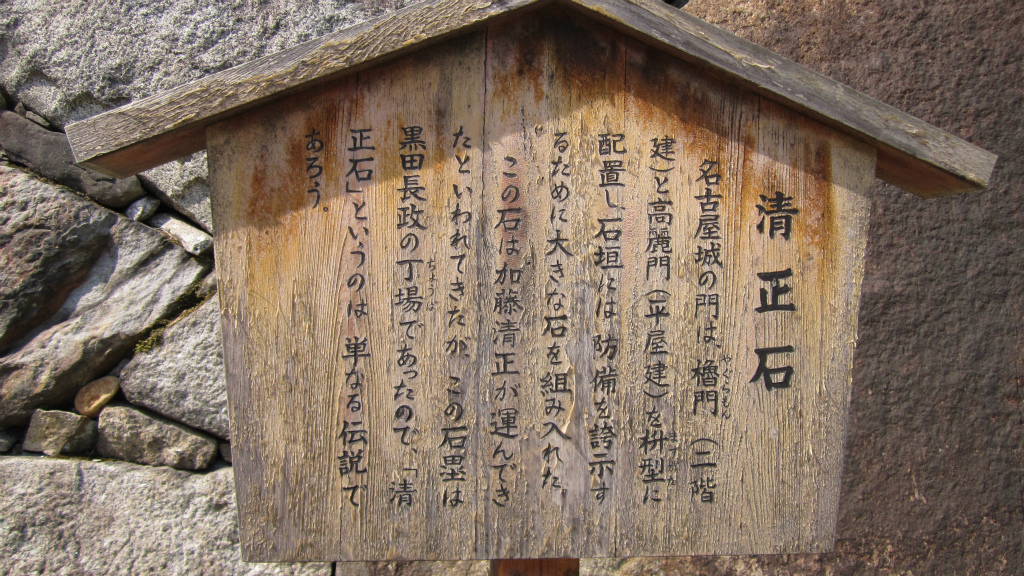 清正石
名古屋城の門は、櫓門(二階
建)と高麗門(平屋建)を枡型に
配置し、石垣には防備を誇示す
るために大きな石を組み入れた。
この石は加藤清正が運んでき
たといわれてきたが、この石塁は
黒田長政の丁場であったので、「清
正石」というのは単なる伝説で
あろう。
やぐらもん
ますがた
ちょうば